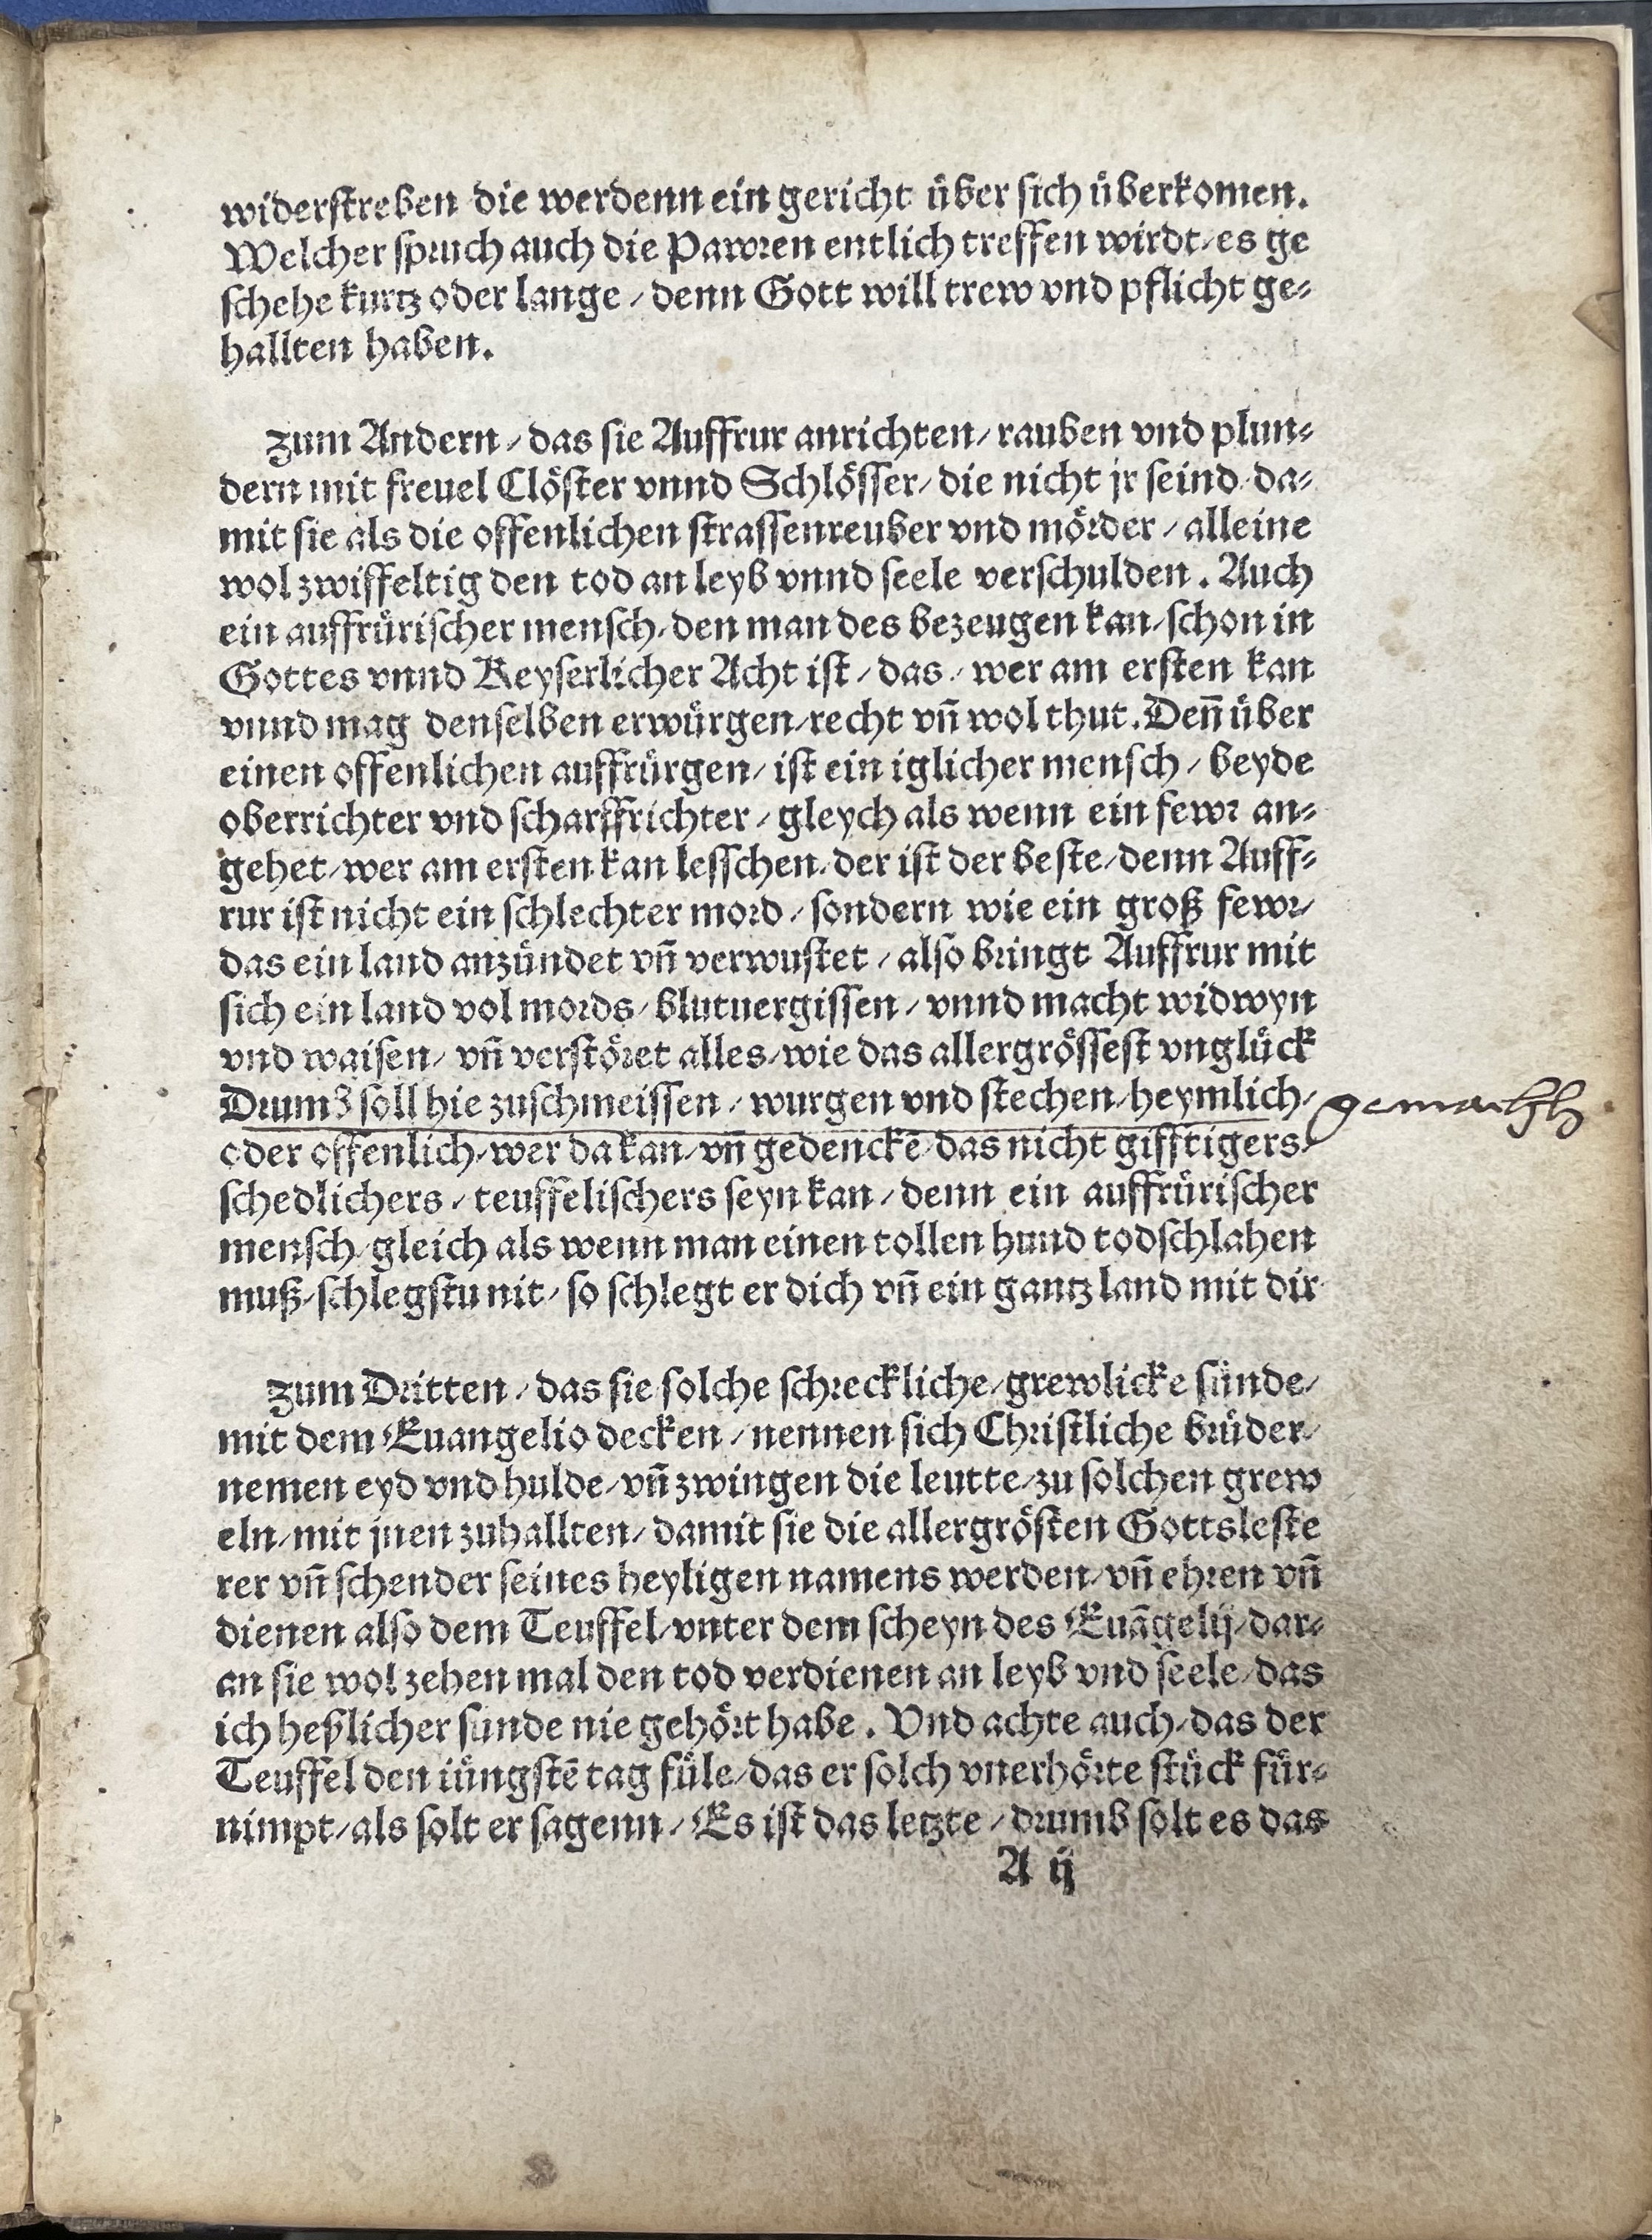 widerstreben die werdenn ein gericht über sich überkomen.
Welcher spruch auch die Pawren entlich treffen wirdt/ es ge
schehe kurtz oder lange / denn Gott will trew vnd pflicht ge-
hallten haben.
Zum Andern / das sie Auffrur anrichten/ rauben vnd plun-
dern mit freuel Clöster vnnd Schlösser/ die nicht jr seind/ da-
mit sie als die offenlichen strassenreuber vnd mörder / alleine
wol zwiffeltig den tod an leyb vnnd seele verschulden. Auch
ein auffrürischer mensch/ den man des bezeugen kan/ schon in
Gottes vnnd Keyserlicher Acht ist / das / wer am ersten kan
vnnd mag denselben erwürgen/ recht vn̄ wol thut. Den̄ über
einen offenlichen auffrürgen/ ist ein iglicher mensch / beyde
oberrichter vnd scharffrichter / gleych als wenn ein fewr an-
gehet/ wer am ersten kan lesschen/ der ist der beste/ denn Auff-
rur ist nicht ein schlechter mord / sondern wie ein groß fewr/
das ein land anzündet vn̄ verwustet / also bringt Auffrur mit
sich ein land vol mords/ blutuergissen / vnnd macht widwyn
vnd waisen/ vn̄ verstöret alles/ wie das allergrössest vnglück
Drumb soll hie zuschmeissen / wurgen vnd stechen/ heymlich/
oder offenlich/ wer da kan/ vn̄ gedenckē/ das nicht gifftigers/
schedlichers / teuffelischers seyn kan / denn ein auffrürischer
mensch/ gleich als wenn man einen tollen hund todschlahen
muß/ schlegstu nit/ so schlegt er dich vn̄ ein gantz land mit dir
Zum Dritten / das sie solche schreckliche/ grewlicke sünde/
mit dem Euangelio decken / nennen sich Christliche brüder/
nemen eyd vnd hulde/ vn̄ zwingen die leutte/ zu solchen grew
eln/ mit jnen zuhallten/ damit sie die allergrösten Gottsleste
rer vn̄ schender seines heyligen namens werden/ vn̄ ehren vn̄
dienen also dem Teuffel/ vnter dem scheyn des Euāgelij/ dar-
an sie wol zehen mal den tod verdienen an leyb vnd seele/ das
ich heßlicher sunde nie gehört habe. Vnd achte auch/ das der
Teuffel den iüngstē tag füle/ das er solch vnerhörte stück für-
nimpt/ als solt er sagenn / Es ist das letzte / drumb solt es das
A ij